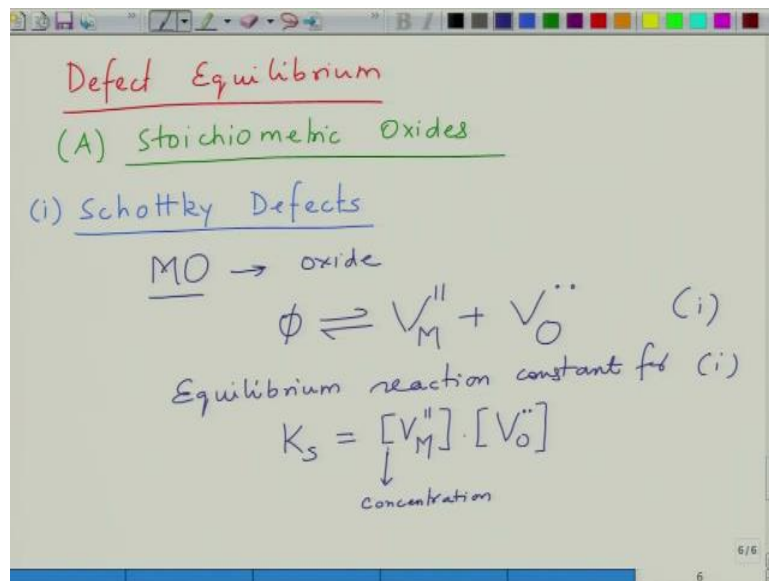 B I
Defect Equilibrium
(A) Stoichiometric Oxides
(i) Schottky Defects
MO → oxide
ϕ ⇌ V_M'' + V_O^{••} (i)
Equilibrium reaction constant for (i)
K_s = [V_M''] . [V_O^{••}]
↓
Concentration
6/6
6